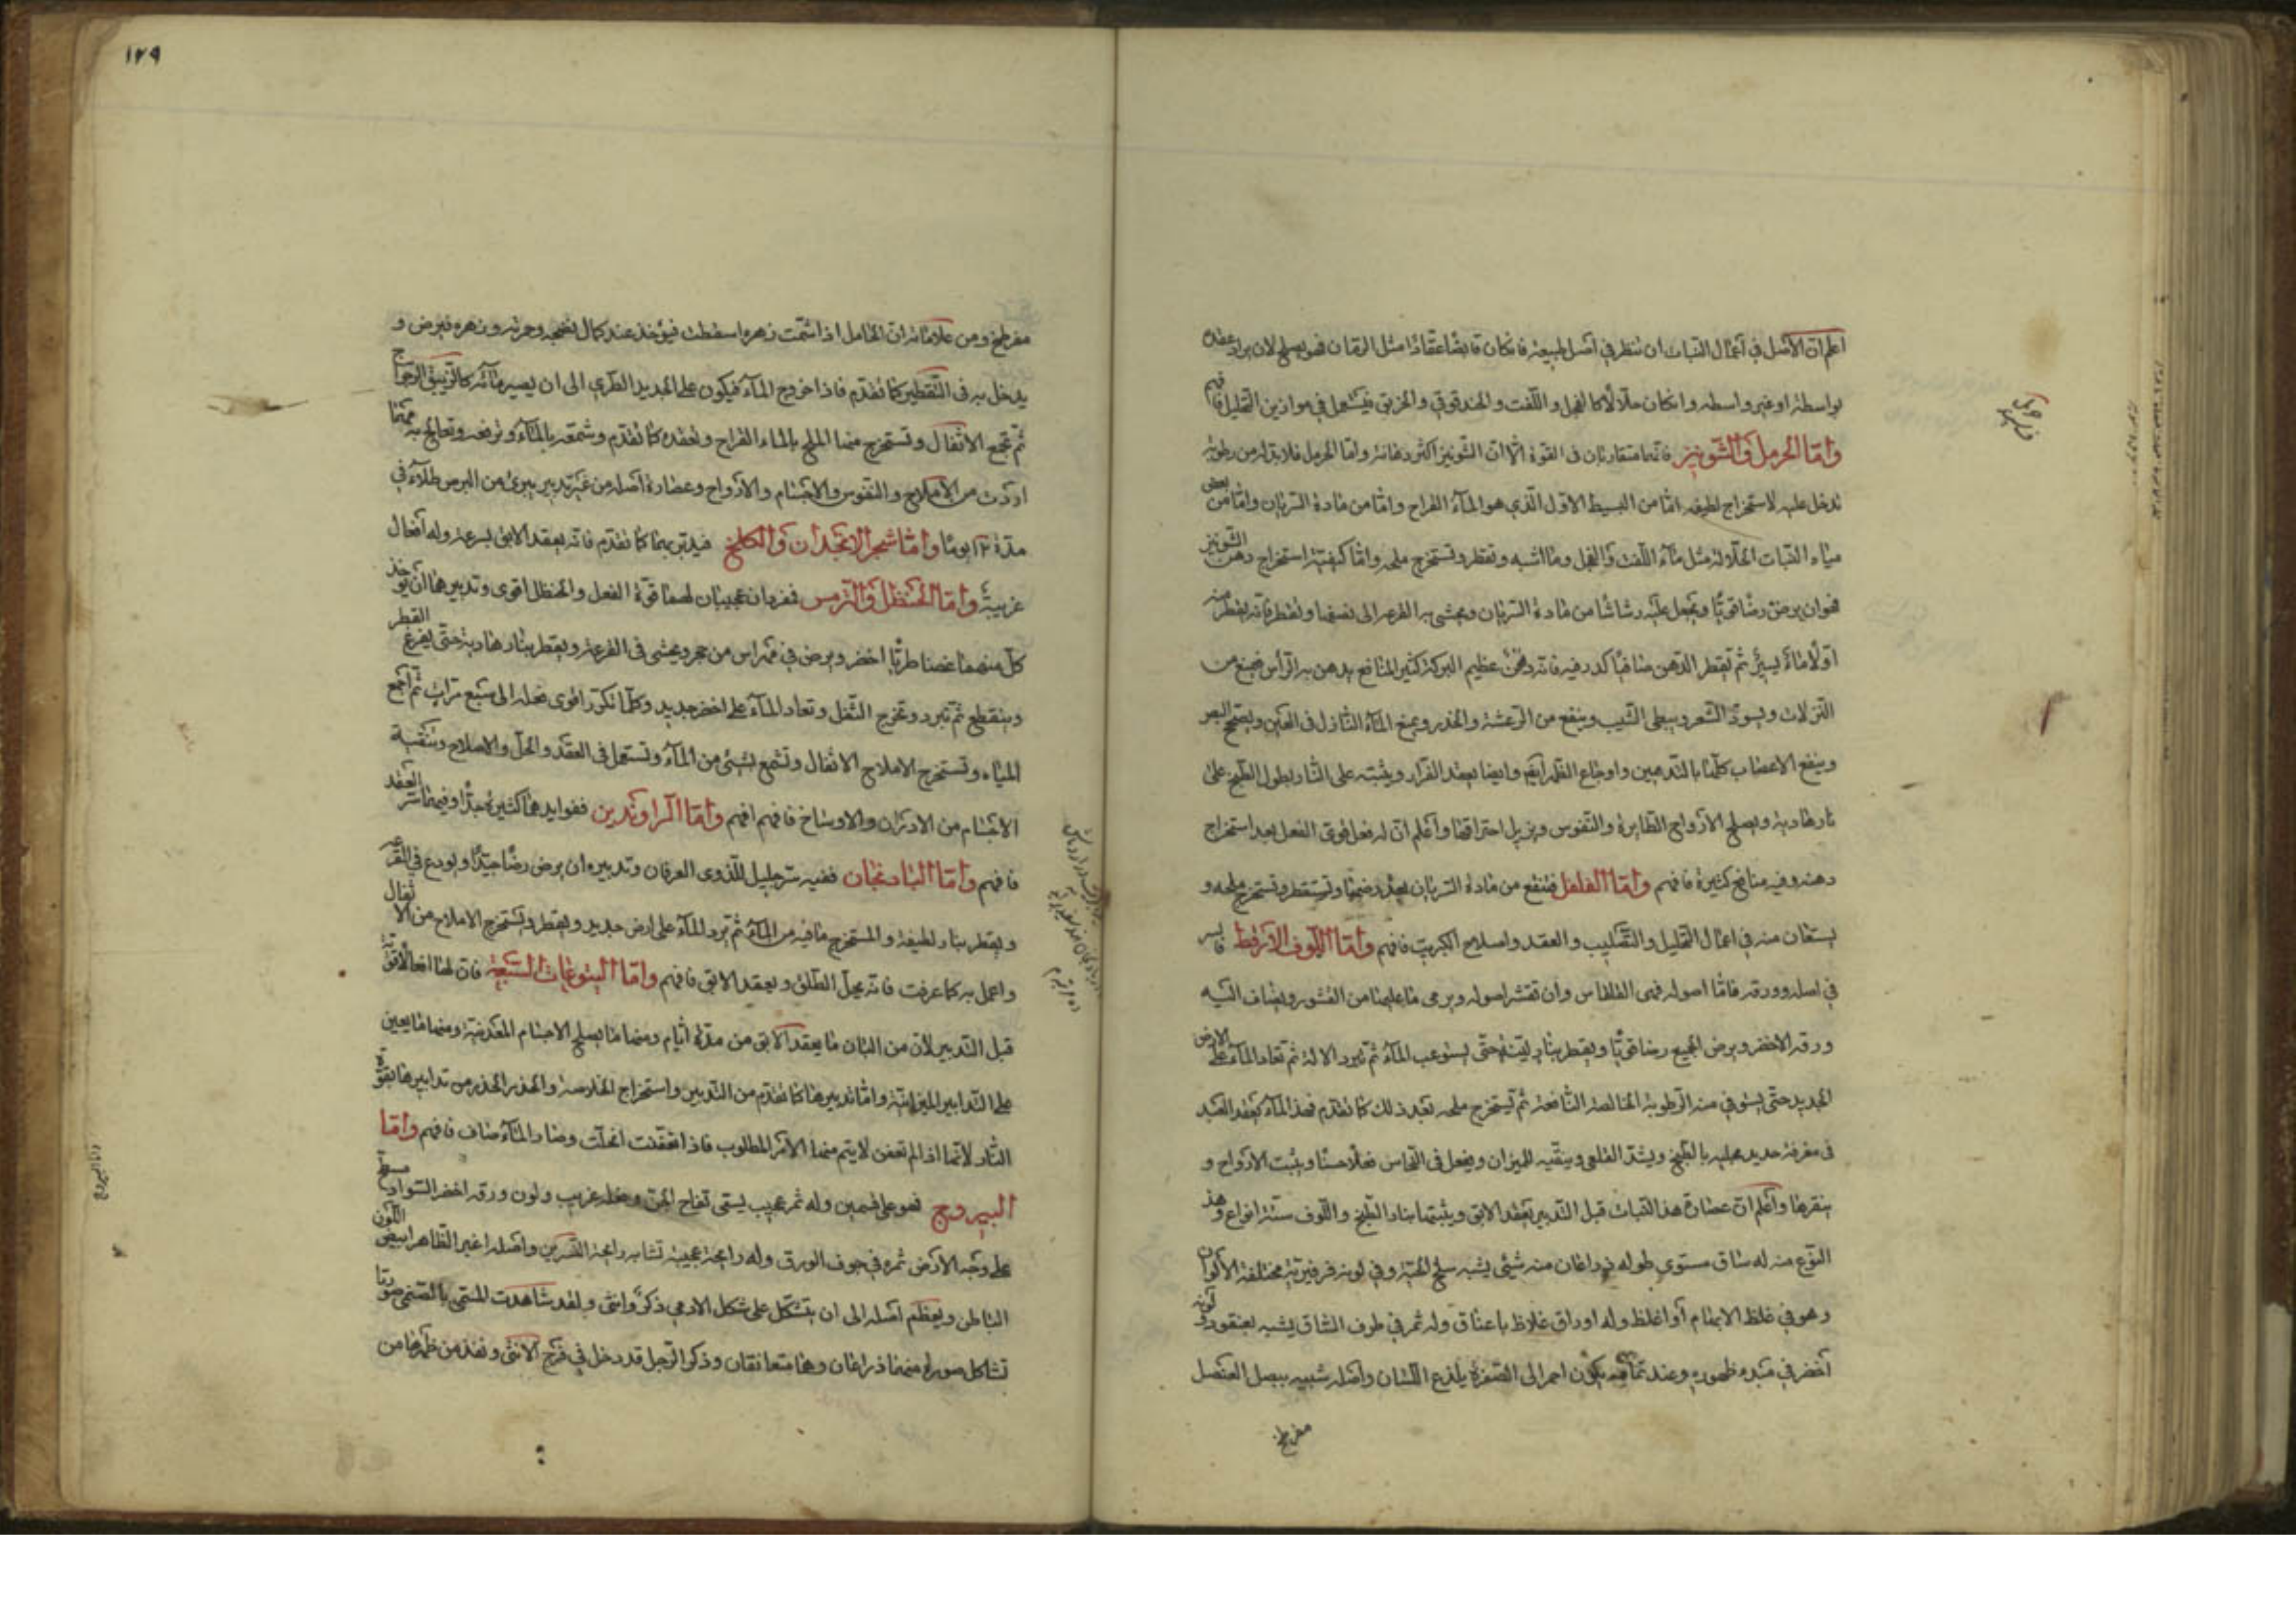 اعلم ان الاصل في اعمال النبات ان تنظر في اصل طبيعته فان كان قابضا عقادا مثل الرمان فهو يصلح لان يراد عقده
بواسطة او غير واسطة وان كان حلالا كالفجل واللفت والحندقوقي والخربق فيستعمل في موازين التحليل فافهم
واما الحرمل والشونيز فانهما متقاربان في القوة الا ان الشونيز اكثر دهانة واما الحرمل فلا بد له من رطوبة
تدخل عليه لاستخراج لطيفه اما من البسيط الاول الذي هو الماء القراح واما من مادة السريان واما من بعض
مياه النبات الحلالة مثل ماء اللفت والفجل وما اشبه وتقطر وتستخرج ملحه واما كيفية استخراج دهن الشونيز
فهو ان يرض رضا قويا ويجعل عليه رشاشا من مادة السريان ويحشى به القرعة الى نصفها وتقطر فانه يقطر منه
اولا ماء يسير ثم تقطر الدهن صافيا لا كدر فيه فانه دهن عظيم البركة كثير المنافع يدهن به الراس فيمنع من
النزلات ويسود الشعر ويبطي الشيب وينفع من الرعشة والخدر ويمنع الماء النازل في العين ويصحح البصر
وينفع الاعصاب كلها بالتدهين واوجاع الظهر وايضا يعقد الفرار ويثبته على النار بطول الطبخ على
نار هادية ويصلح الارواح الطايرة والنفوس ويزيل احتراقها واعلم ان له فعل قوي الفعل بعد استخراج
دهنه وفيه منافع كثيرة فافهم واما الفلفل فتنقع من مادة السريان بعد رضها وتستقطر وتستخرج ملحه و
يستعان منه في اعمال التحليل والتكليب والعقد واصلاح الكبريت فافهم واما اللوف الارقط فالسر
في اصله وورقه فاما اصوله فهي القلقاس وان تقشر اصوله ويرمى ما عليها من القشور ويضاف اليه
ورقه الاخضر ويرض الجميع رضا قويا ويقطر بنار لينة حتى يستوعب الماء ثم تبرد الالة ثم تعاد الماء على الارض
الجديد حتى يستوفي منه الرطوبة الخالصة النافعة ثم تستخرج ملحه بعد ذلك كما تقدم فهذا الماء يعقد العبد
في مغرفة حديد مجليه بالطبخ ويشد القلعي وينقيه للميزان ويفعل في النحاس فعلا حسنا ويثبت الارواح و
ينقرها واعلم ان عصارة هذا النبات قبل التدبير تعقد الابق ويثبتها بنار الطبخ واللوف ستة انواع وهذا
النوع منه له ساق مستوي طوله ذراعان منه شيئ يشبه سلخ الحية وفي لونه فرفيرية مختلفة الالوان
وهو في غلظ الابهام او اغلظ وله اوراق غلاظ باعناق وله ثمر في طرف الساق يشبه بعنقود ولونه
اخضر في مبدء ظهوره وعند تمامه يكون احمر الى الصفرة يلذع اللسان واصله شبيه ببصل العنصل
مفرطح
١٢٩
مفرطح ومن علاماته ان الحامل اذا شمت زهره اسقطت فيؤخذ عند كمال نضجه وحرته وزهره فيرض و
يدخل به في التقطير كما تقدم فاذا خروج الماء فيكون على الجديد الطري الى ان يصير مائه كالزيبق الرجراج
ثم تجمع الاثفال وتستخرج منها الملح بالماء القراح وتعقده كما تقدم وشمعه بالماء وترفعه وتعالج به مهما
اردت من الاملاح والنفوس والاجسام والارواح وعصارة اصله من غير تدبير يبرئ من البرص طلاء في
مدة ١٢ يوما واما شجر الانجدان والكلخ فيدبر بهما كما تقدم فانه يعقد الابق بسرعة وله افعال
غريبة واما الحنظل والترمس فهما عجيبان لهما قوة الفعل والحنظل اقوى وتدبيرهما ان يؤخذ
كل منهما غضا طريا اخضر ويرض في مهراس من حجر ويحشى في القرعة ويقطر بنار هادية حتى يفرغ القطر
وينقطع ثم تبرد وتخرج الثفل وتعاد الماء على اخضر جديد وكلما تكرر اقوى فعله الى سبع مرات ثم اجمع
المياه وتستخرج الاملاح الاثفال وتشمع بشيئ من الماء وتستعمل في العقد والحل والاصلاح وتنقية
الاجسام من الادران والاوساخ فافهم افهم واما الراوندين ففوايدهما كثيرة جدا وفيهما سر العقد
فافهم واما البادنجان ففيه سر جليل للذوي العرفان وتدبيره ان يرض رضا جيدا ويودع في القرعة
ويقطر بنار لطيفة والمستخرج ما فيه من الماء ثم ترد الماء على ارض جديد ويقطر وتستخرج الاملاح من الاثفال
واعمل به كما عرفت فانه يحل الطلق ويعقد الابق فافهم واما اليتوعات السبعة فان لها افعالا قوية
قبل التدبير لان من البان ما يعقد الابق من مدة ايام ومنها ما يصلح الاجسام المعدنية ومنها ما يعين
على التدابير الميزانية واما تدبيرها كما تقدم من التدبير واستخراج الخلاصة والحذر الحذر من تدابيرها بقوة
النار لانها اذا لم تعفن لا يتم منها الامر المطلوب فاذا تعفنت انحلت وصار الماء صاف فافهم واما
اليبروج فهو على قسمين وله ثمر عجيب يسمى تفاح الجن وفعله غريب ولون ورقه اخضر السواد منبسط
على وجه الارض ثمره في جوف الورق وله رايحة عجيبة تشابه رايحة النسرين واصله اغبر الظاهر ابيض اللون
الباطن ويعظم اصله الى ان يتشكل على شكل الادمي ذكر وانثى ولقد شاهدت المسمى بالصنمي صورتا
تشاكل صورة منهما ذراعان وهما متعانقان وذكر الرجل قد دخل في فرج الانثى ونفذ من ظهرها من